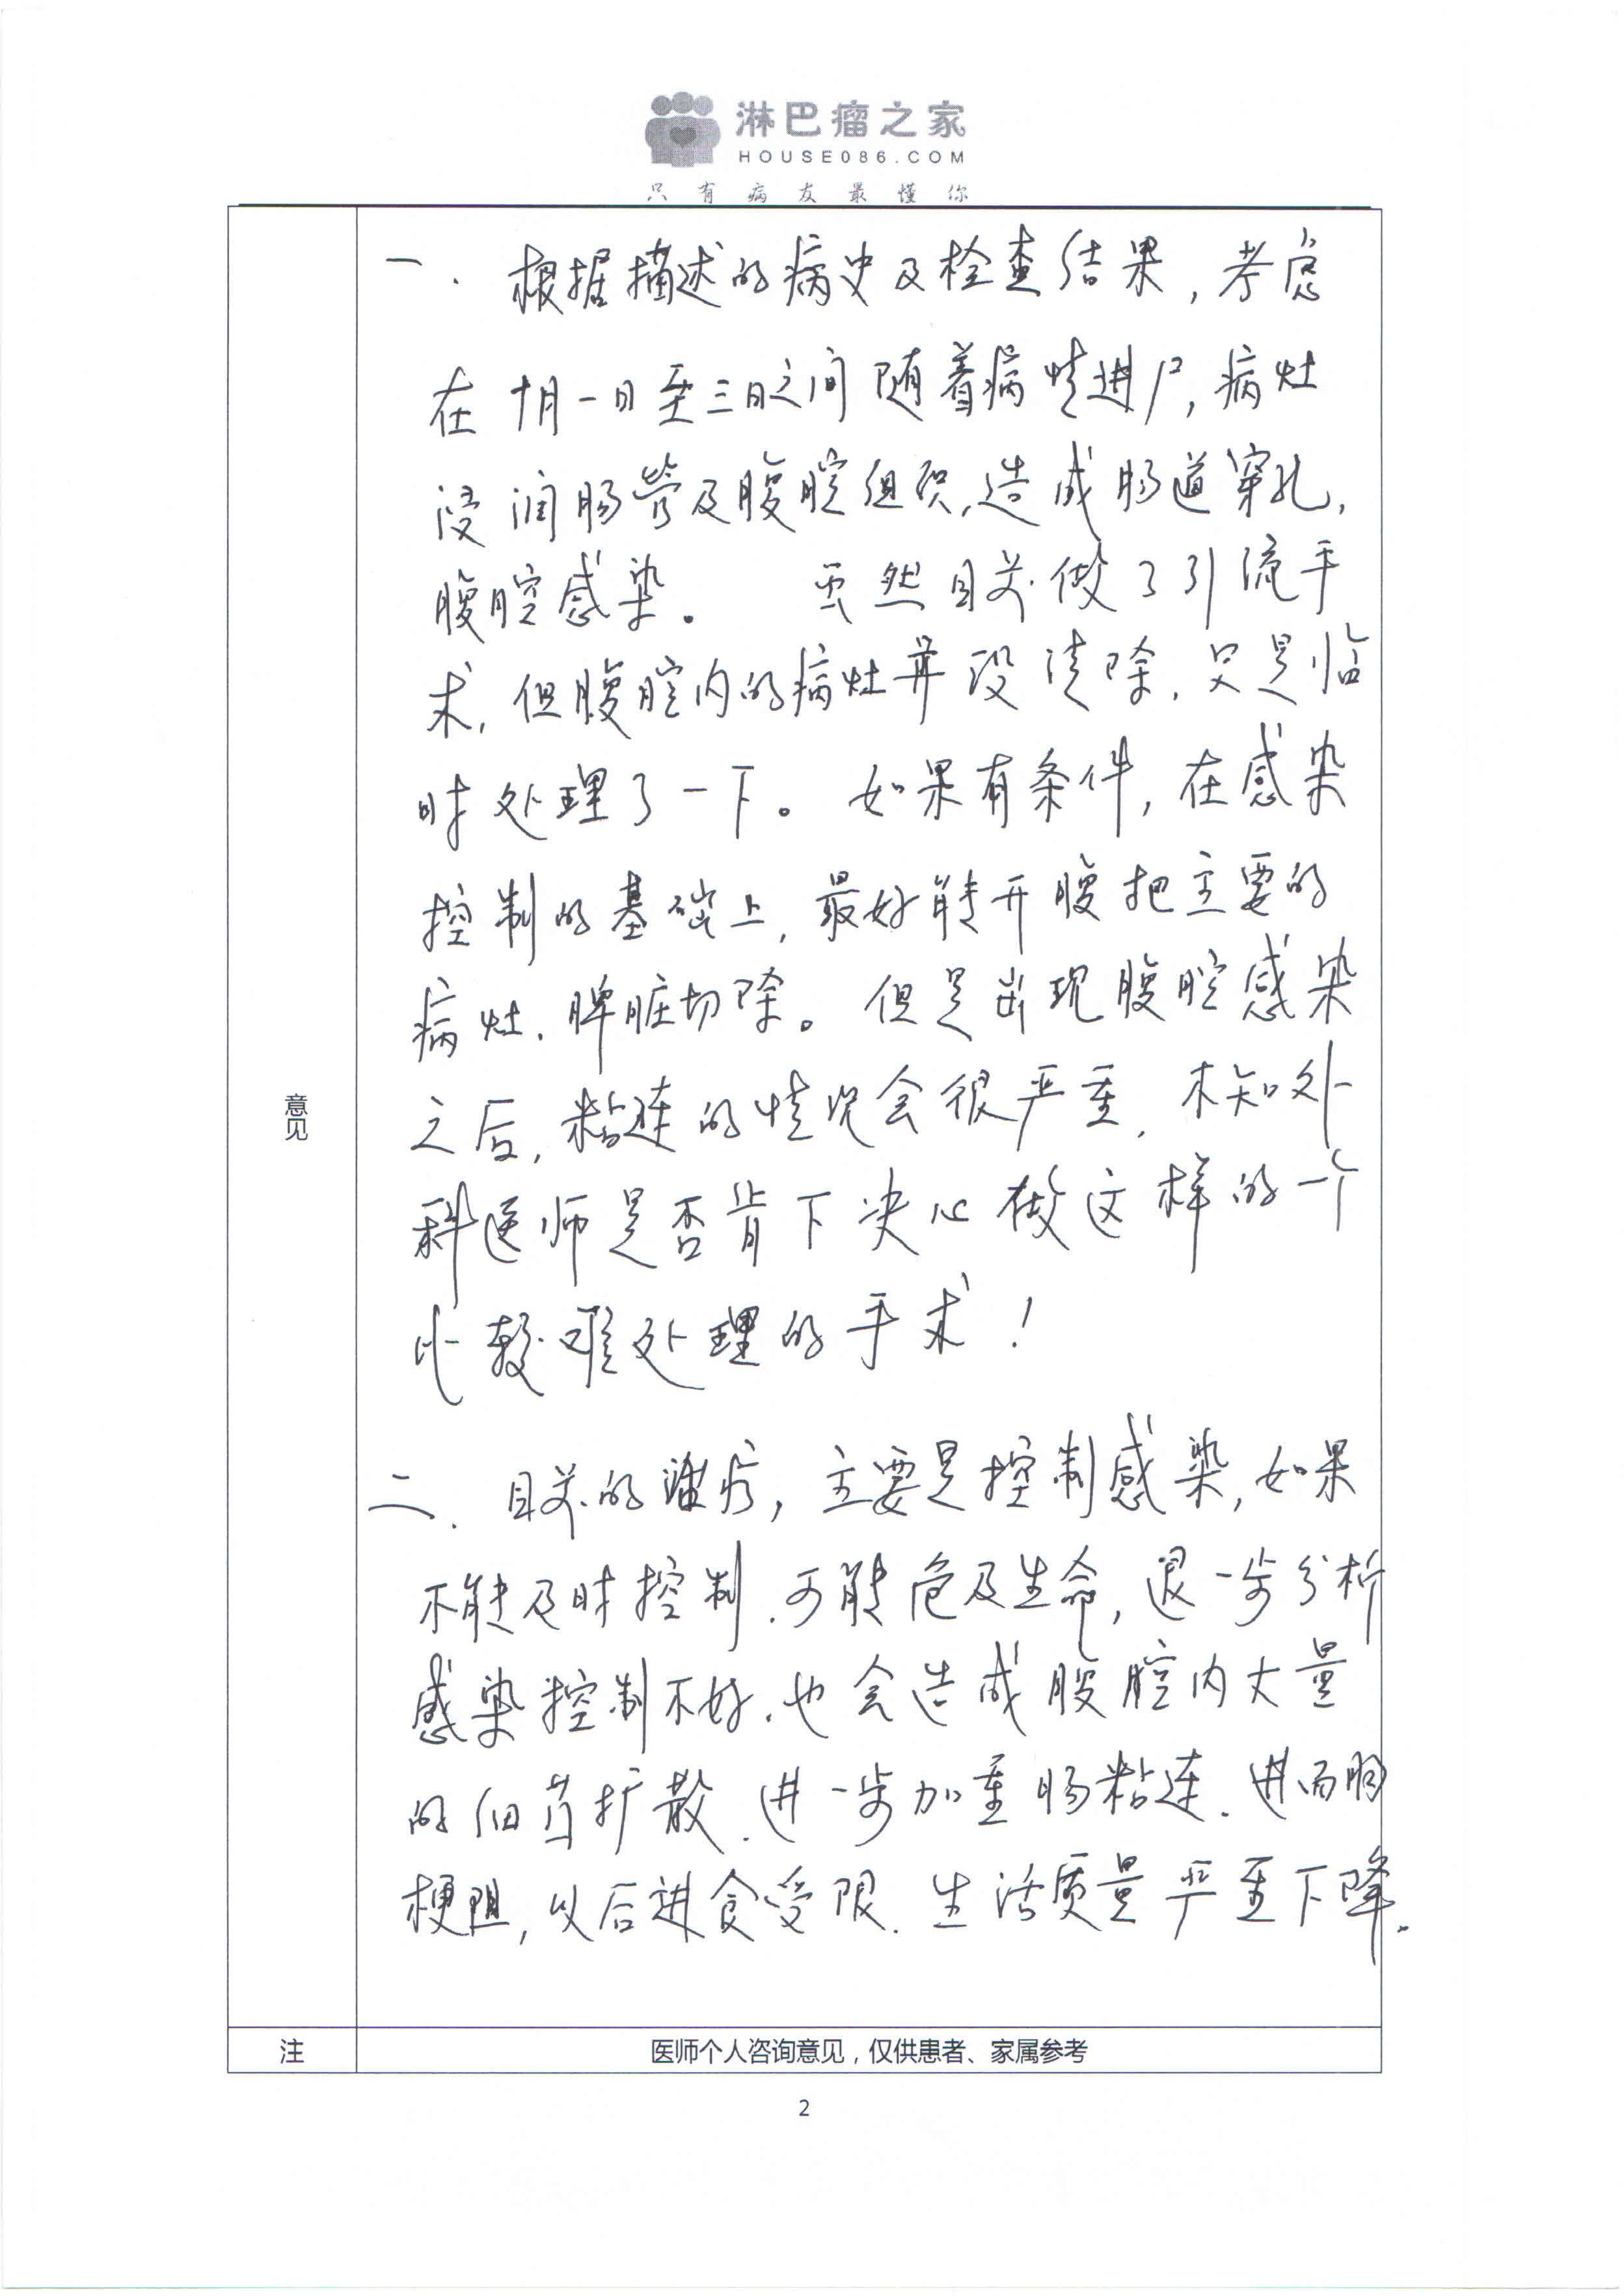 淋巴瘤之家
HOUSE086.COM
只有病友最懂你
一. 根据描述的病史及检查结果,考虑
在十月一日至三日之间随着病情进尸,病灶
浸润肠管及腹腔组织,造成肠道穿孔,
腹腔感染。 虽然目前做了引流手
术,但腹腔内的病灶并没清除,只是临
时处理了一下。如果有条件,在感染
控制的基础上,最好能开腹把主要的
病灶.脾脏切除。但是出现腹腔感染
之后,粘连的情况会很严重,不知外
科医师是否肯下决心做这样的一个
比较难处理的手术!
二. 目前的治疗,主要是控制感染,如果
不能及时控制.可能危及生命,退一步分析
感染控制不好.也会造成腹腔内大量
的细菌扩散.进一步加重肠粘连.进而肠
梗阻,以后进食受限.生活质量严重下降.
意见
注
医师个人咨询意见,仅供患者、家属参考
2